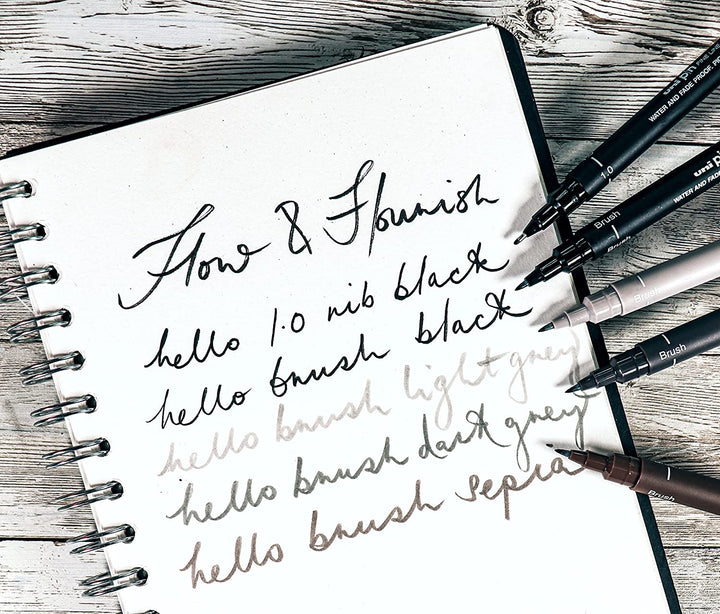 Flow & Flourish
hello 1.0 nib black
hello brush black
hello brush light grey
hello brush dark grey
hello brush sepia
uni pin FINE
WATER AND FADE PROOF,
1.0
uni
WATER AND FADE
Brush
Brush
Brush
Brush